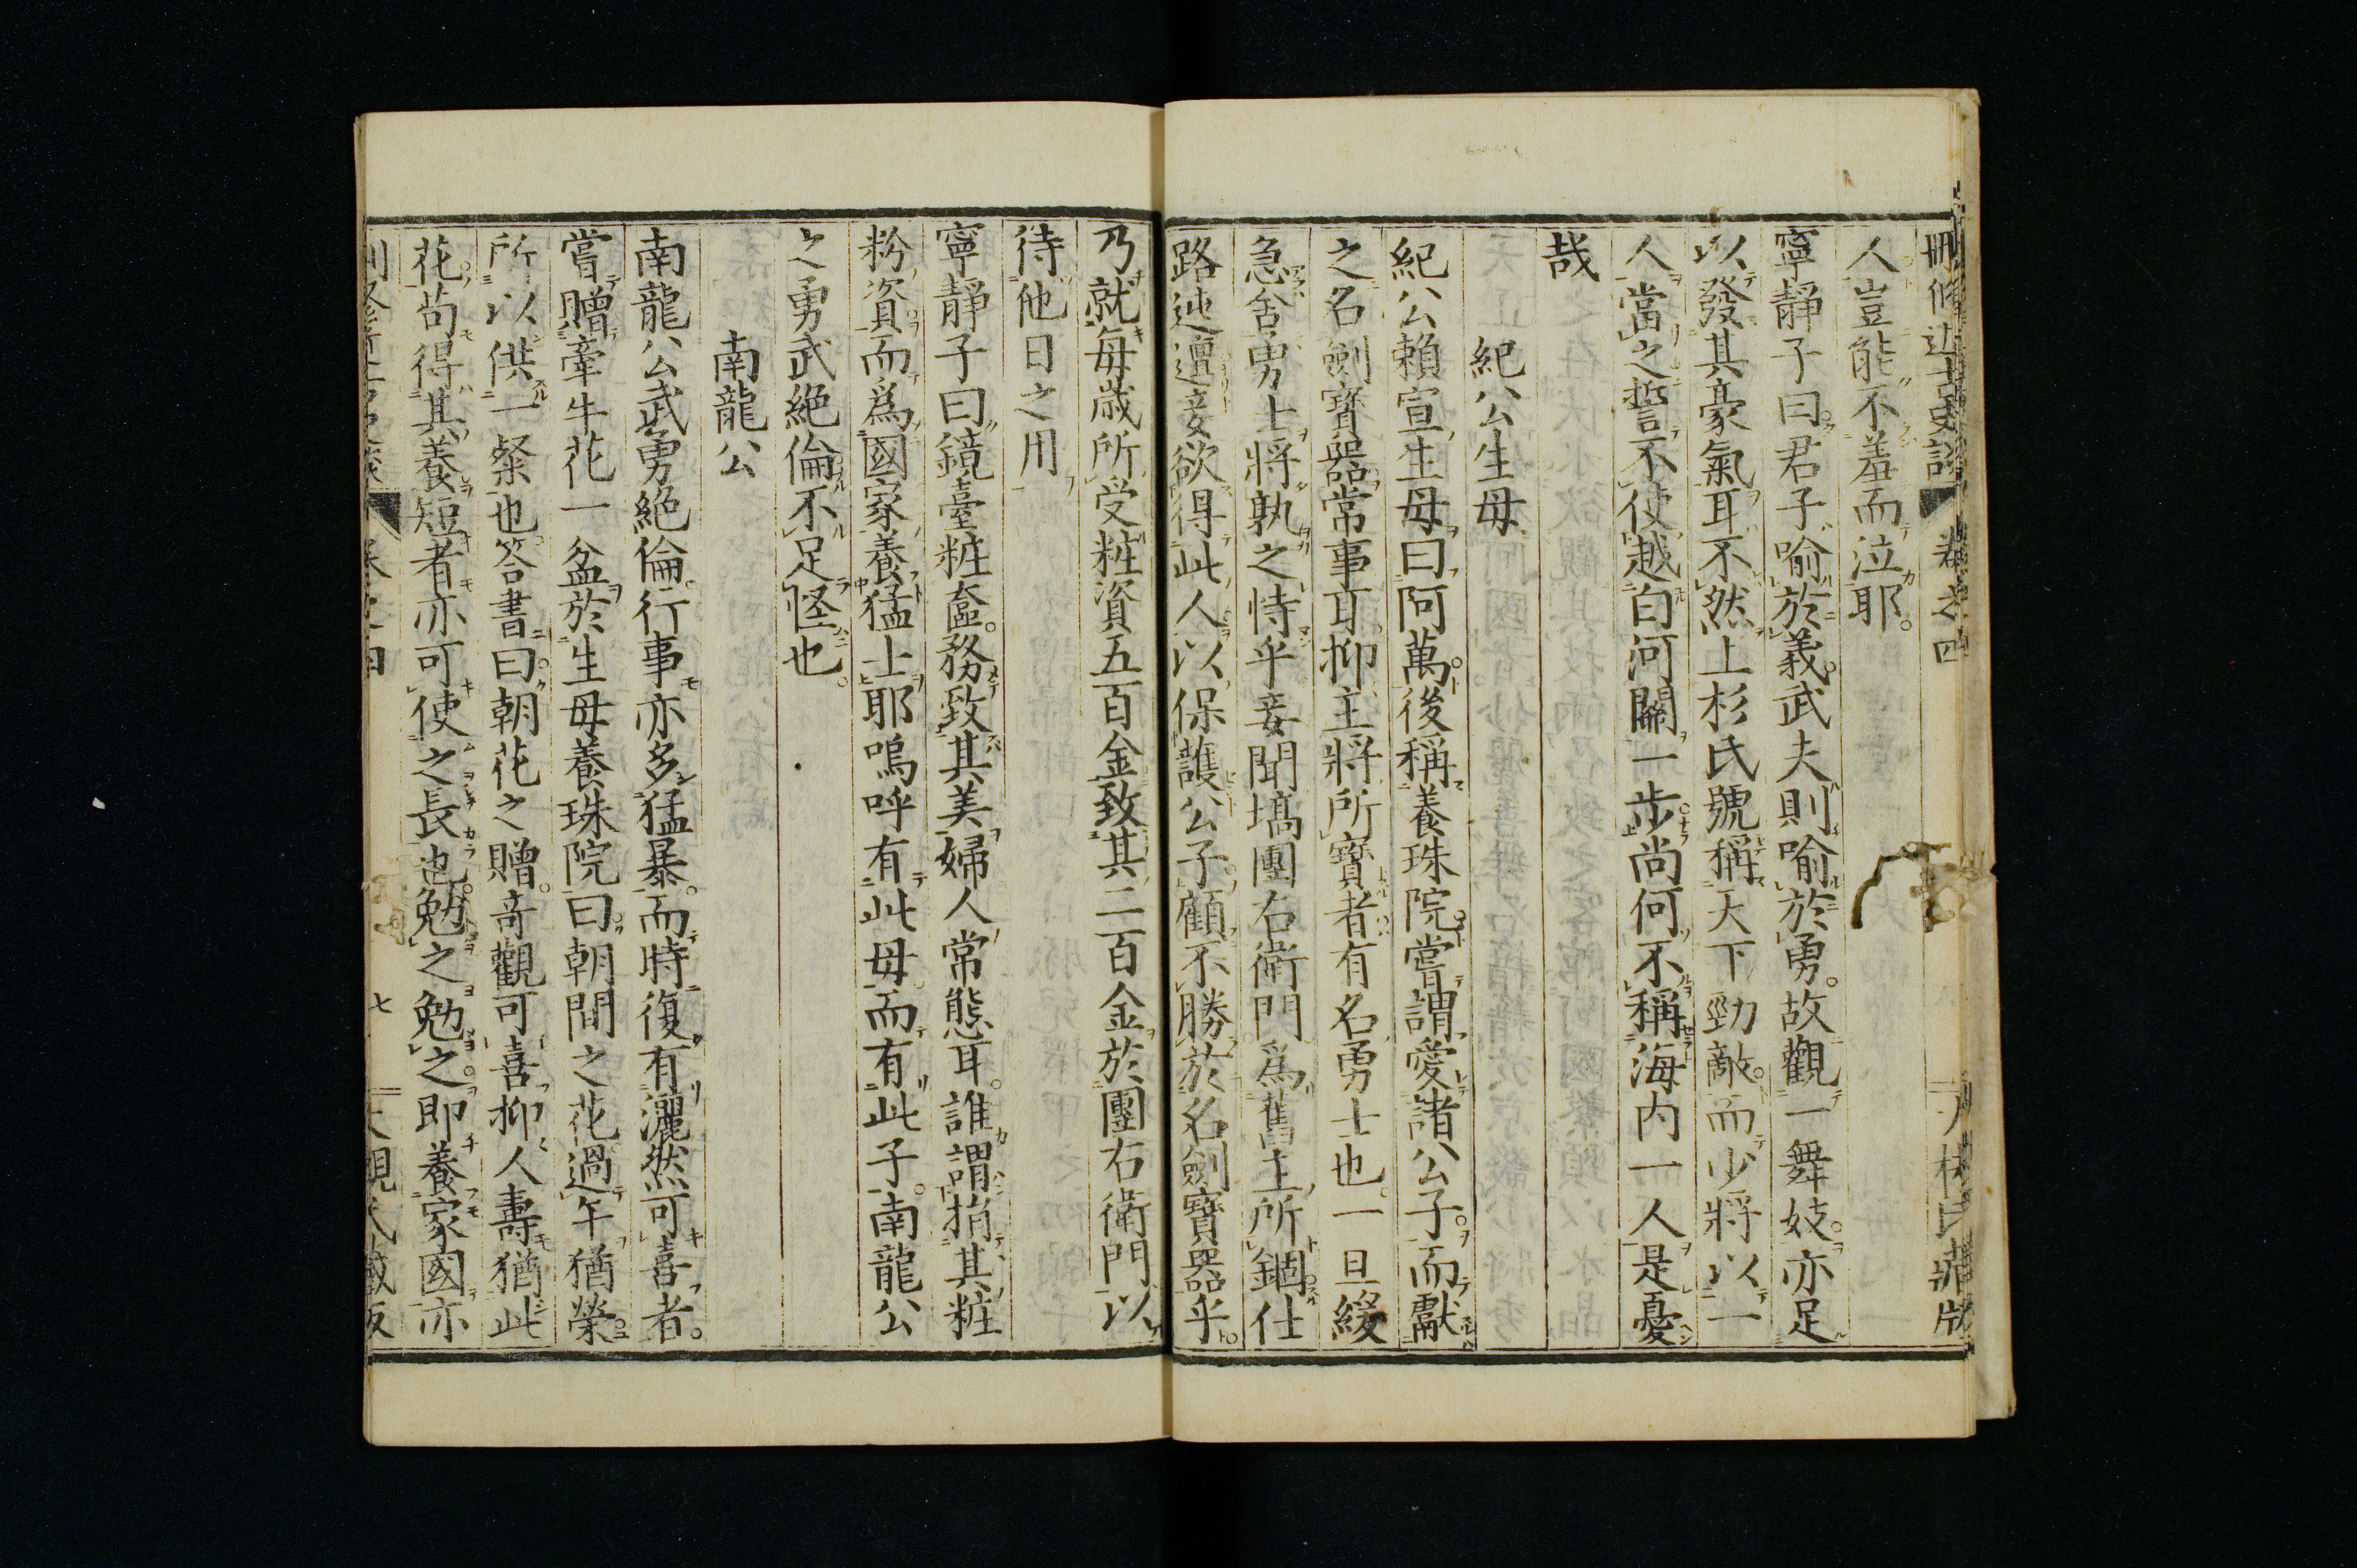 刪修近古史談 卷之四
人豈能不羞而泣耶。
寧靜子曰。君子喻於義。武夫則喻於勇。故觀一舞妓。亦足
以發其豪氣耳。不然上杉氏號稱天下勁敵。而少將以一
人當之。誓不使越白河關一步。尚何不稱海内一人是憂
哉
紀公生母
紀公賴宣生母曰阿萬。後稱養珠院。嘗謂愛諸公子。而獻
之名劍寶器。常事耳。抑主將所寶者有名勇士也。一旦緩
急舍勇士。將孰之恃乎。妾聞塙團右衛門爲舊主所錮。仕
路迍邅。妾欲得此人以保護公子。顧不勝於名劍寶器乎。
乃就毎歳所受粧資五百金。致其二百金於團右衛門。以
待他日之用
寧靜子曰。鏡臺粧奩。務致其美。婦人常態耳。誰謂捐其粧
粉資。而爲國家養猛士耶。嗚呼有此母。而有此子。南龍公
之勇武絶倫。不足怪也。
南龍公
南龍公武勇絶倫。行事亦多猛暴。而時復有灑然可喜者。
嘗贈牽牛花一盆於生母養珠院曰。朝間之花。過午猶榮
所以供一粲也。答書曰。朝花之贈。奇觀可喜。抑人壽猶此
花。苟得其養。短者亦可使之長也。勉之勉之。即養家國亦
七